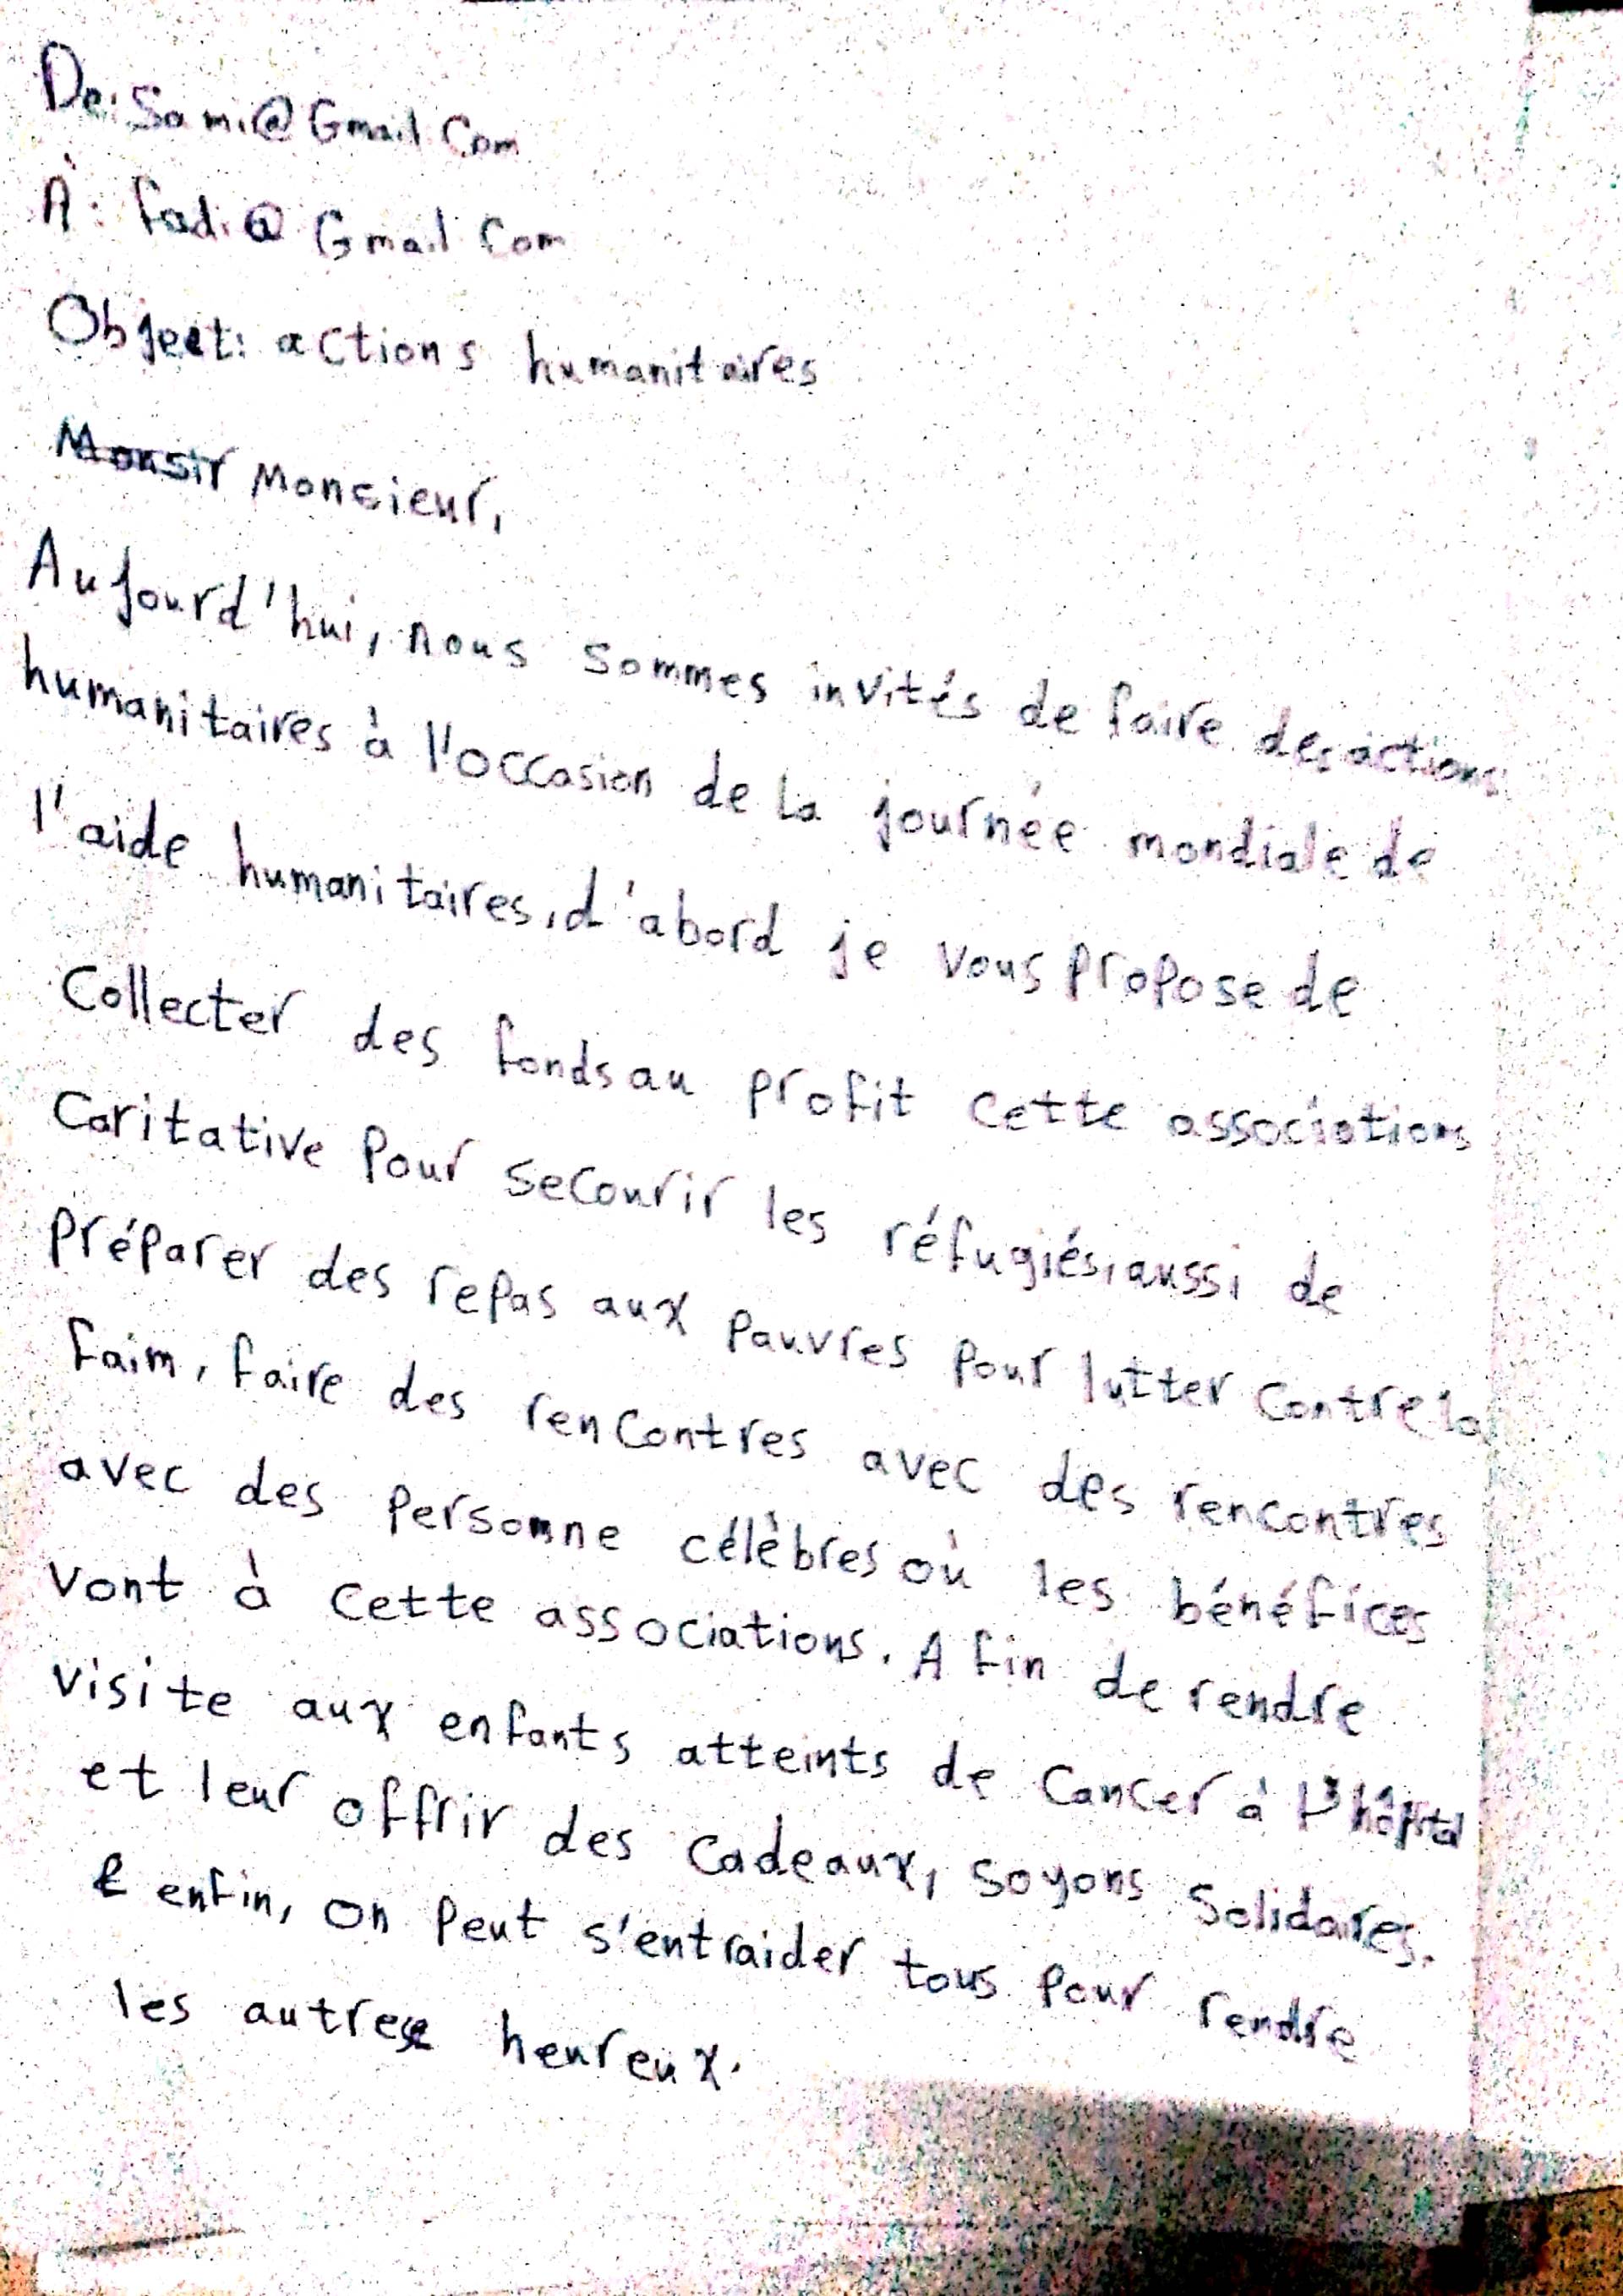 De: Sami@Gmail Com
À: fadi@Gmail Com
Objeet: actions humanitaires
Monsir Moncieur,
Aujourd'hui, nous sommes invités de faire des actions
humanitaires à l'occasion de la journée mondiale de
l'aide humanitaires, d'abord je vous propose de
Collecter des fonds au profit cette associations
Caritative pour secourir les réfugiés, aussi de
préparer des repas aux pauvres pour lutter contre la
faim, faire des rencontres avec des rencontres
avec des personne célèbres où les bénéfices
vont à cette associations. A fin de rendre
visite aux enfants atteints de cancer à l'hôpital
et leur offrir des cadeaux, soyons solidaires.
enfin, on peut s'entraider tous pour rendre
les autres heureux.